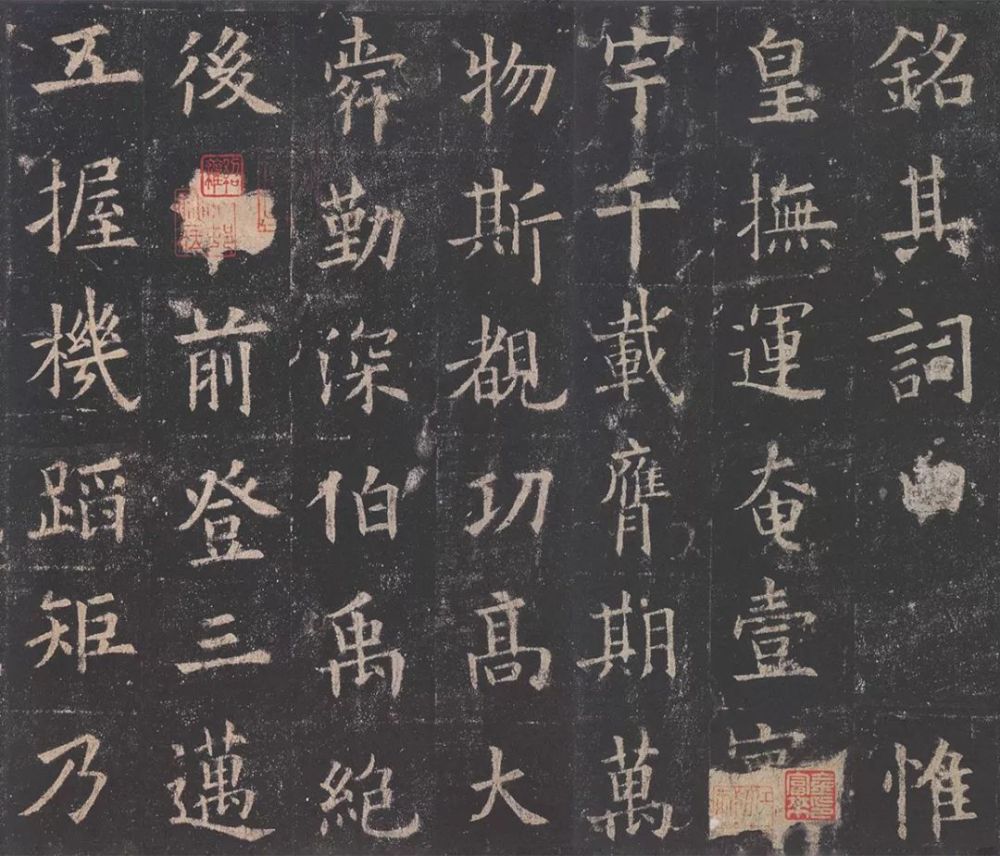 銘其詞曰惟
皇撫運奄壹寰
宇千載膺期萬
物斯覩功高大
舜勤深伯禹絕
後前登三邁
五握機蹈矩乃